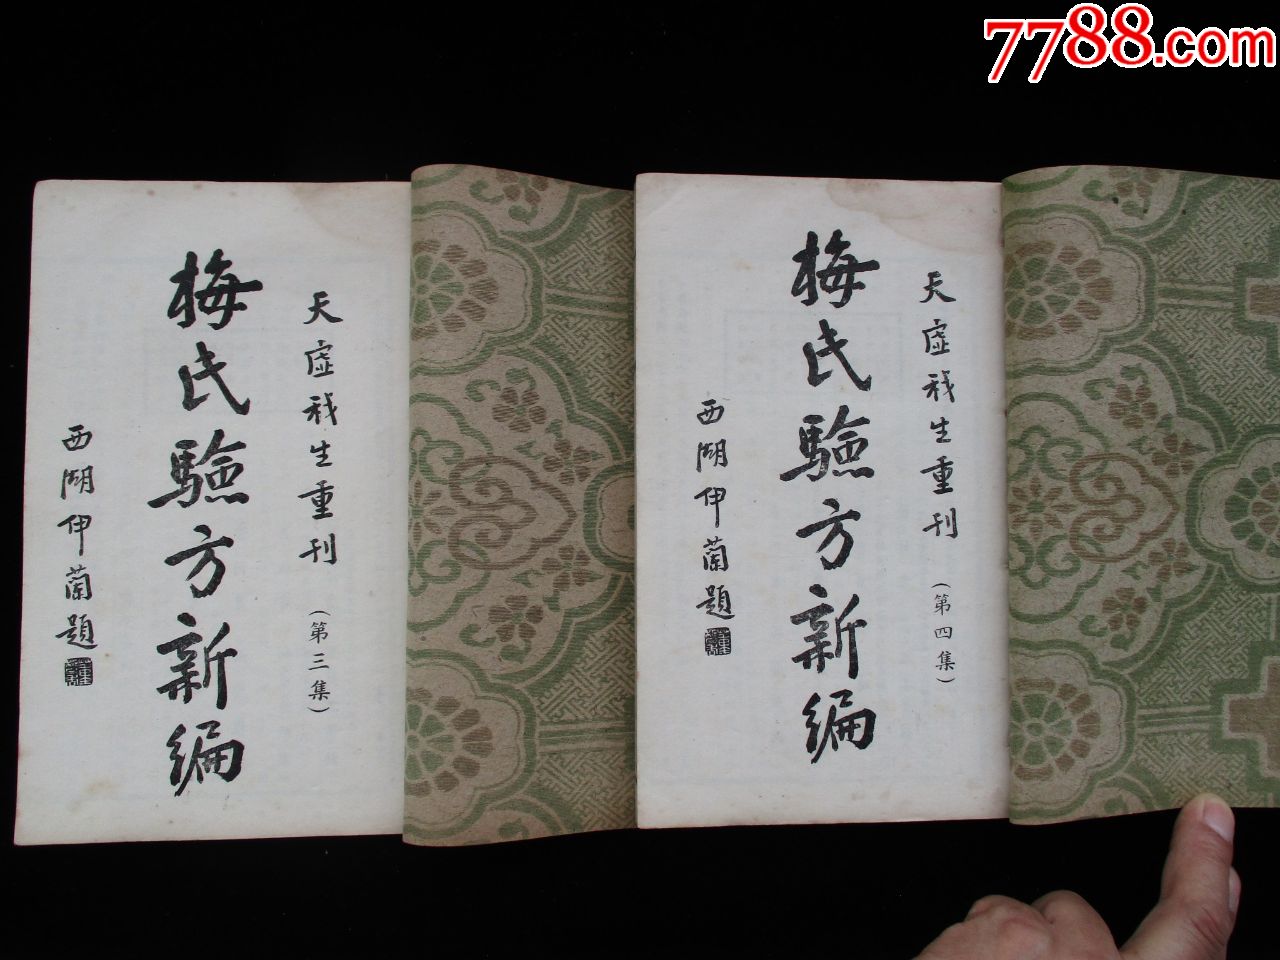 7788.com
天虛我生重刊（第三集）
梅氏驗方新編
西湖伊蘭題
天虛我生重刊（第四集）
梅氏驗方新編
西湖伊蘭題